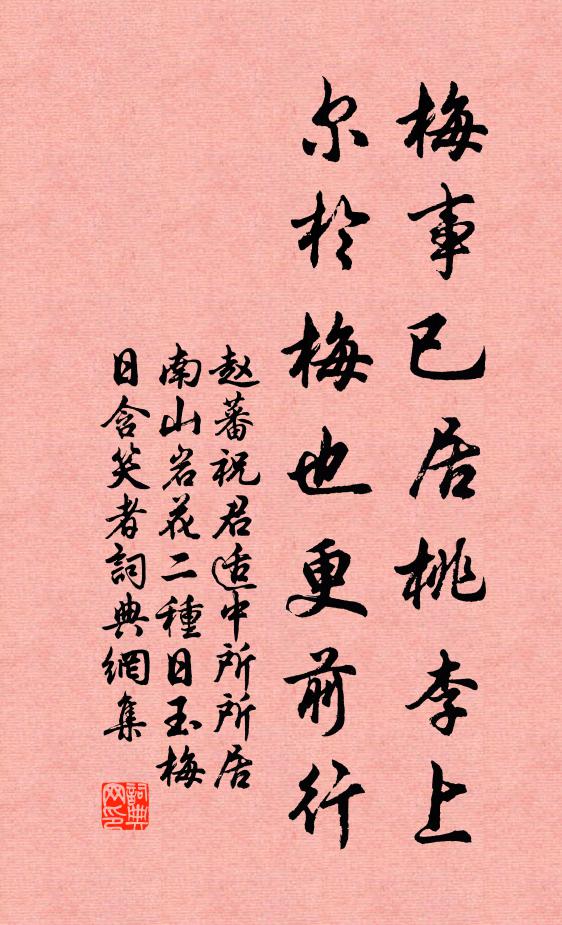 梅事已居桃李上
尔於梅也更前行
赵蕃祝君适中所所居
南山岩花二種日玉梅
日含笑者詞典網集
詞典网印